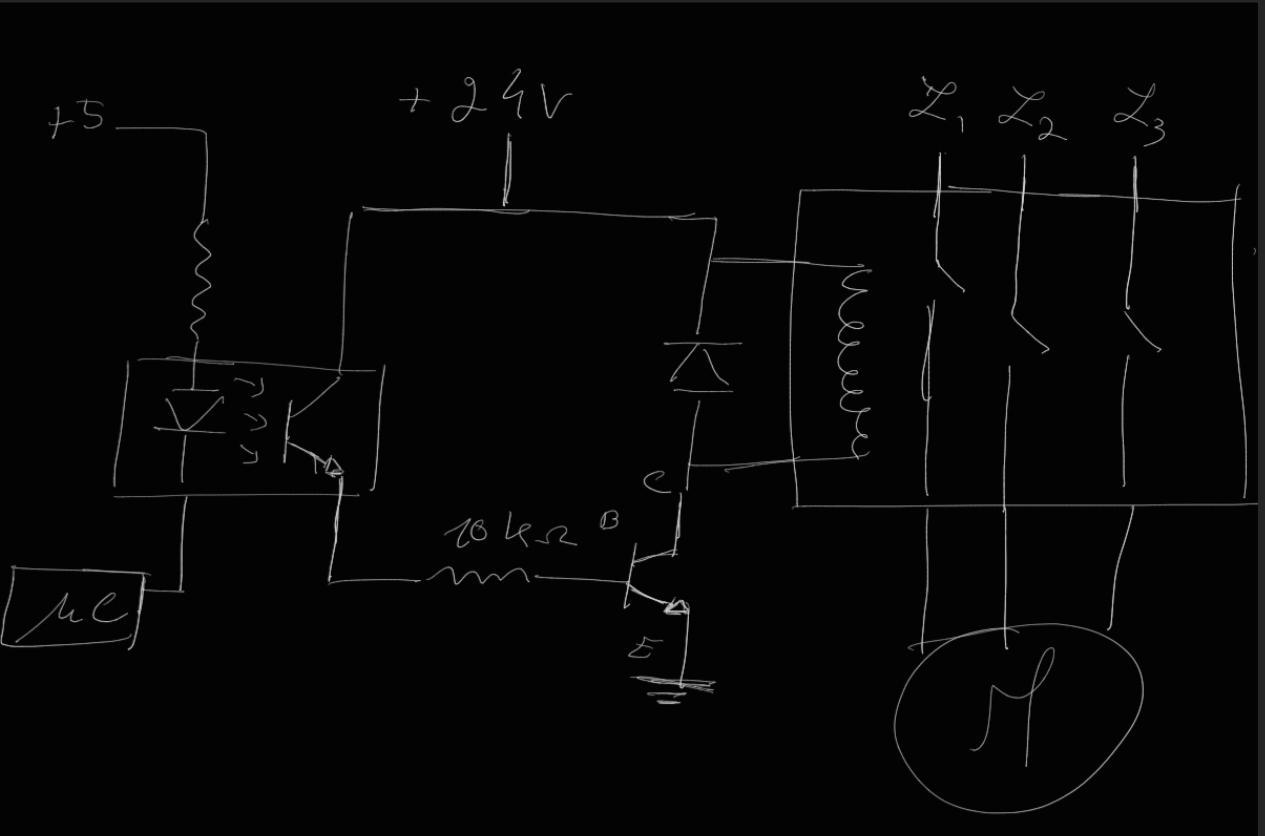 +5
+24V
L1 L2 L3
C
10kΩ B
μC
E
M